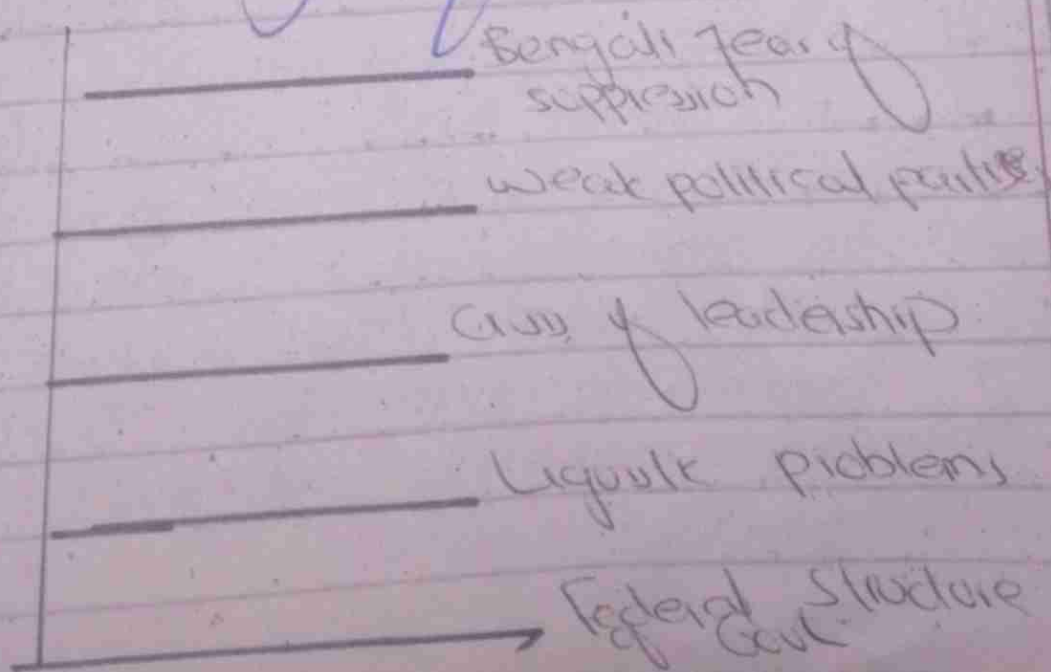 Bengali fear of
suppression
weak political parties
Crisis of leadership
Liguistic problems
Federal Structure
Govt